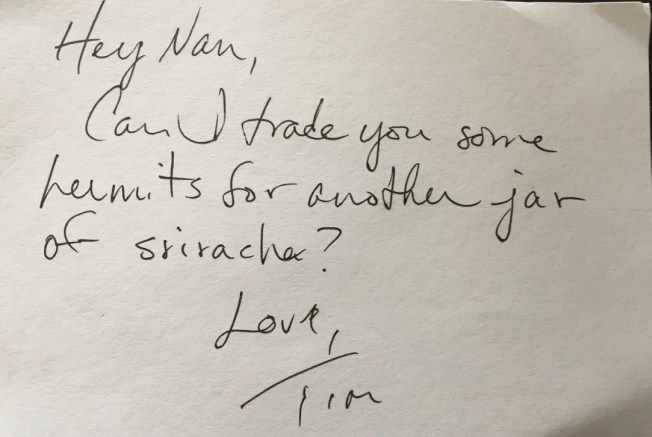 Hey Nan,
Can I trade you some
hermits for another jar
of sriracha?
Love,
Tim